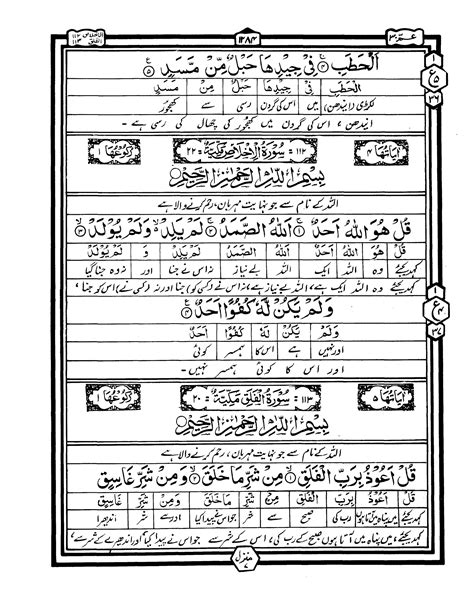 الاخلاص ۱۱۲
الفلق ۱۱۳
۱۲۸۴
عمّ ۳۰
الْحَطَبِ ۴ فِيْ جِيْدِهَا حَبْلٌ مِّنْ مَّسَدٍ ۵
الْحَطَبِ فِيْ جِيْدِهَا حَبْلٌ مِنْ مَسَدٍ
لکڑی (ایندھن) میں اس کی گردن رسی سے کھجور
ایندھن، اس کی گردن میں کھجور کی چھال کی رسی ہے -
اٰيَاتُهَا ۴ ۱۱۲ = سُوْرَةُ الْاِخْلَاصِ مَكِّيَّةٌ = ۲۲ رُكُوْعُهَا ۱
بِسْمِ اللهِ الرَّحْمٰنِ الرَّحِيْمِ
اللہ کے نام سے جو نہایت مہربان، رحم کرنے والا ہے
قُلْ هُوَ اللهُ اَحَدٌ ۱ اَللهُ الصَّمَدُ ۲ لَمْ يَلِدْ وَلَمْ يُوْلَدْ ۳
قُلْ هُوَ اللهُ اَحَدٌ اَللهُ الصَّمَدُ لَمْ يَلِدْ وَ لَمْ يُوْلَدْ
کہہ دیجئے وہ اللہ ایک اللہ بے نیاز نہ اس نے جنا اور نہ وہ جنا گیا
کہہ دیجئے وہ اللہ ایک ہے، اللہ بے نیاز ہے، نہ اس نے (کسی کو) جنا اور نہ (کسی نے) اس کو جنا،
وَلَمْ يَكُنْ لَّهٗ كُفُوًا اَحَدٌ ۴
وَلَمْ يَكُنْ لَهٗ كُفُوًا اَحَدٌ
اور نہیں ہے اس کا ہمسر کوئی
اور اس کا کوئی ہمسر نہیں -
اٰيَاتُهَا ۵ ۱۱۳ = سُوْرَةُ الْفَلَقِ مَكِّيَّةٌ = ۲۰ رُكُوْعُهَا ۱
بِسْمِ اللهِ الرَّحْمٰنِ الرَّحِيْمِ
اللہ کے نام سے جو نہایت مہربان، رحم کرنے والا ہے
قُلْ اَعُوْذُ بِرَبِّ الْفَلَقِ ۱ مِنْ شَرِّ مَا خَلَقَ ۲ وَمِنْ شَرِّ غَاسِقٍ
قُلْ اَعُوْذُ بِرَبِّ الْفَلَقِ مِنْ شَرِّ مَا خَلَقَ وَمِنْ شَرِّ غَاسِقٍ
کہہ دیجئے میں پناہ میں آتا ہوں رب کی صبح سے شر جو اس نے پیدا کیا اور سے شر اندھیرا
کہہ دیجئے، میں پناہ میں آتا ہوں صبح کے رب کی، اس کے شر سے جو اس نے پیدا کیا اور اندھیرے کے شر سے،
منزل ۷